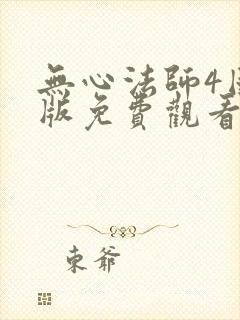 無心法師4
版免費觀看
東爺